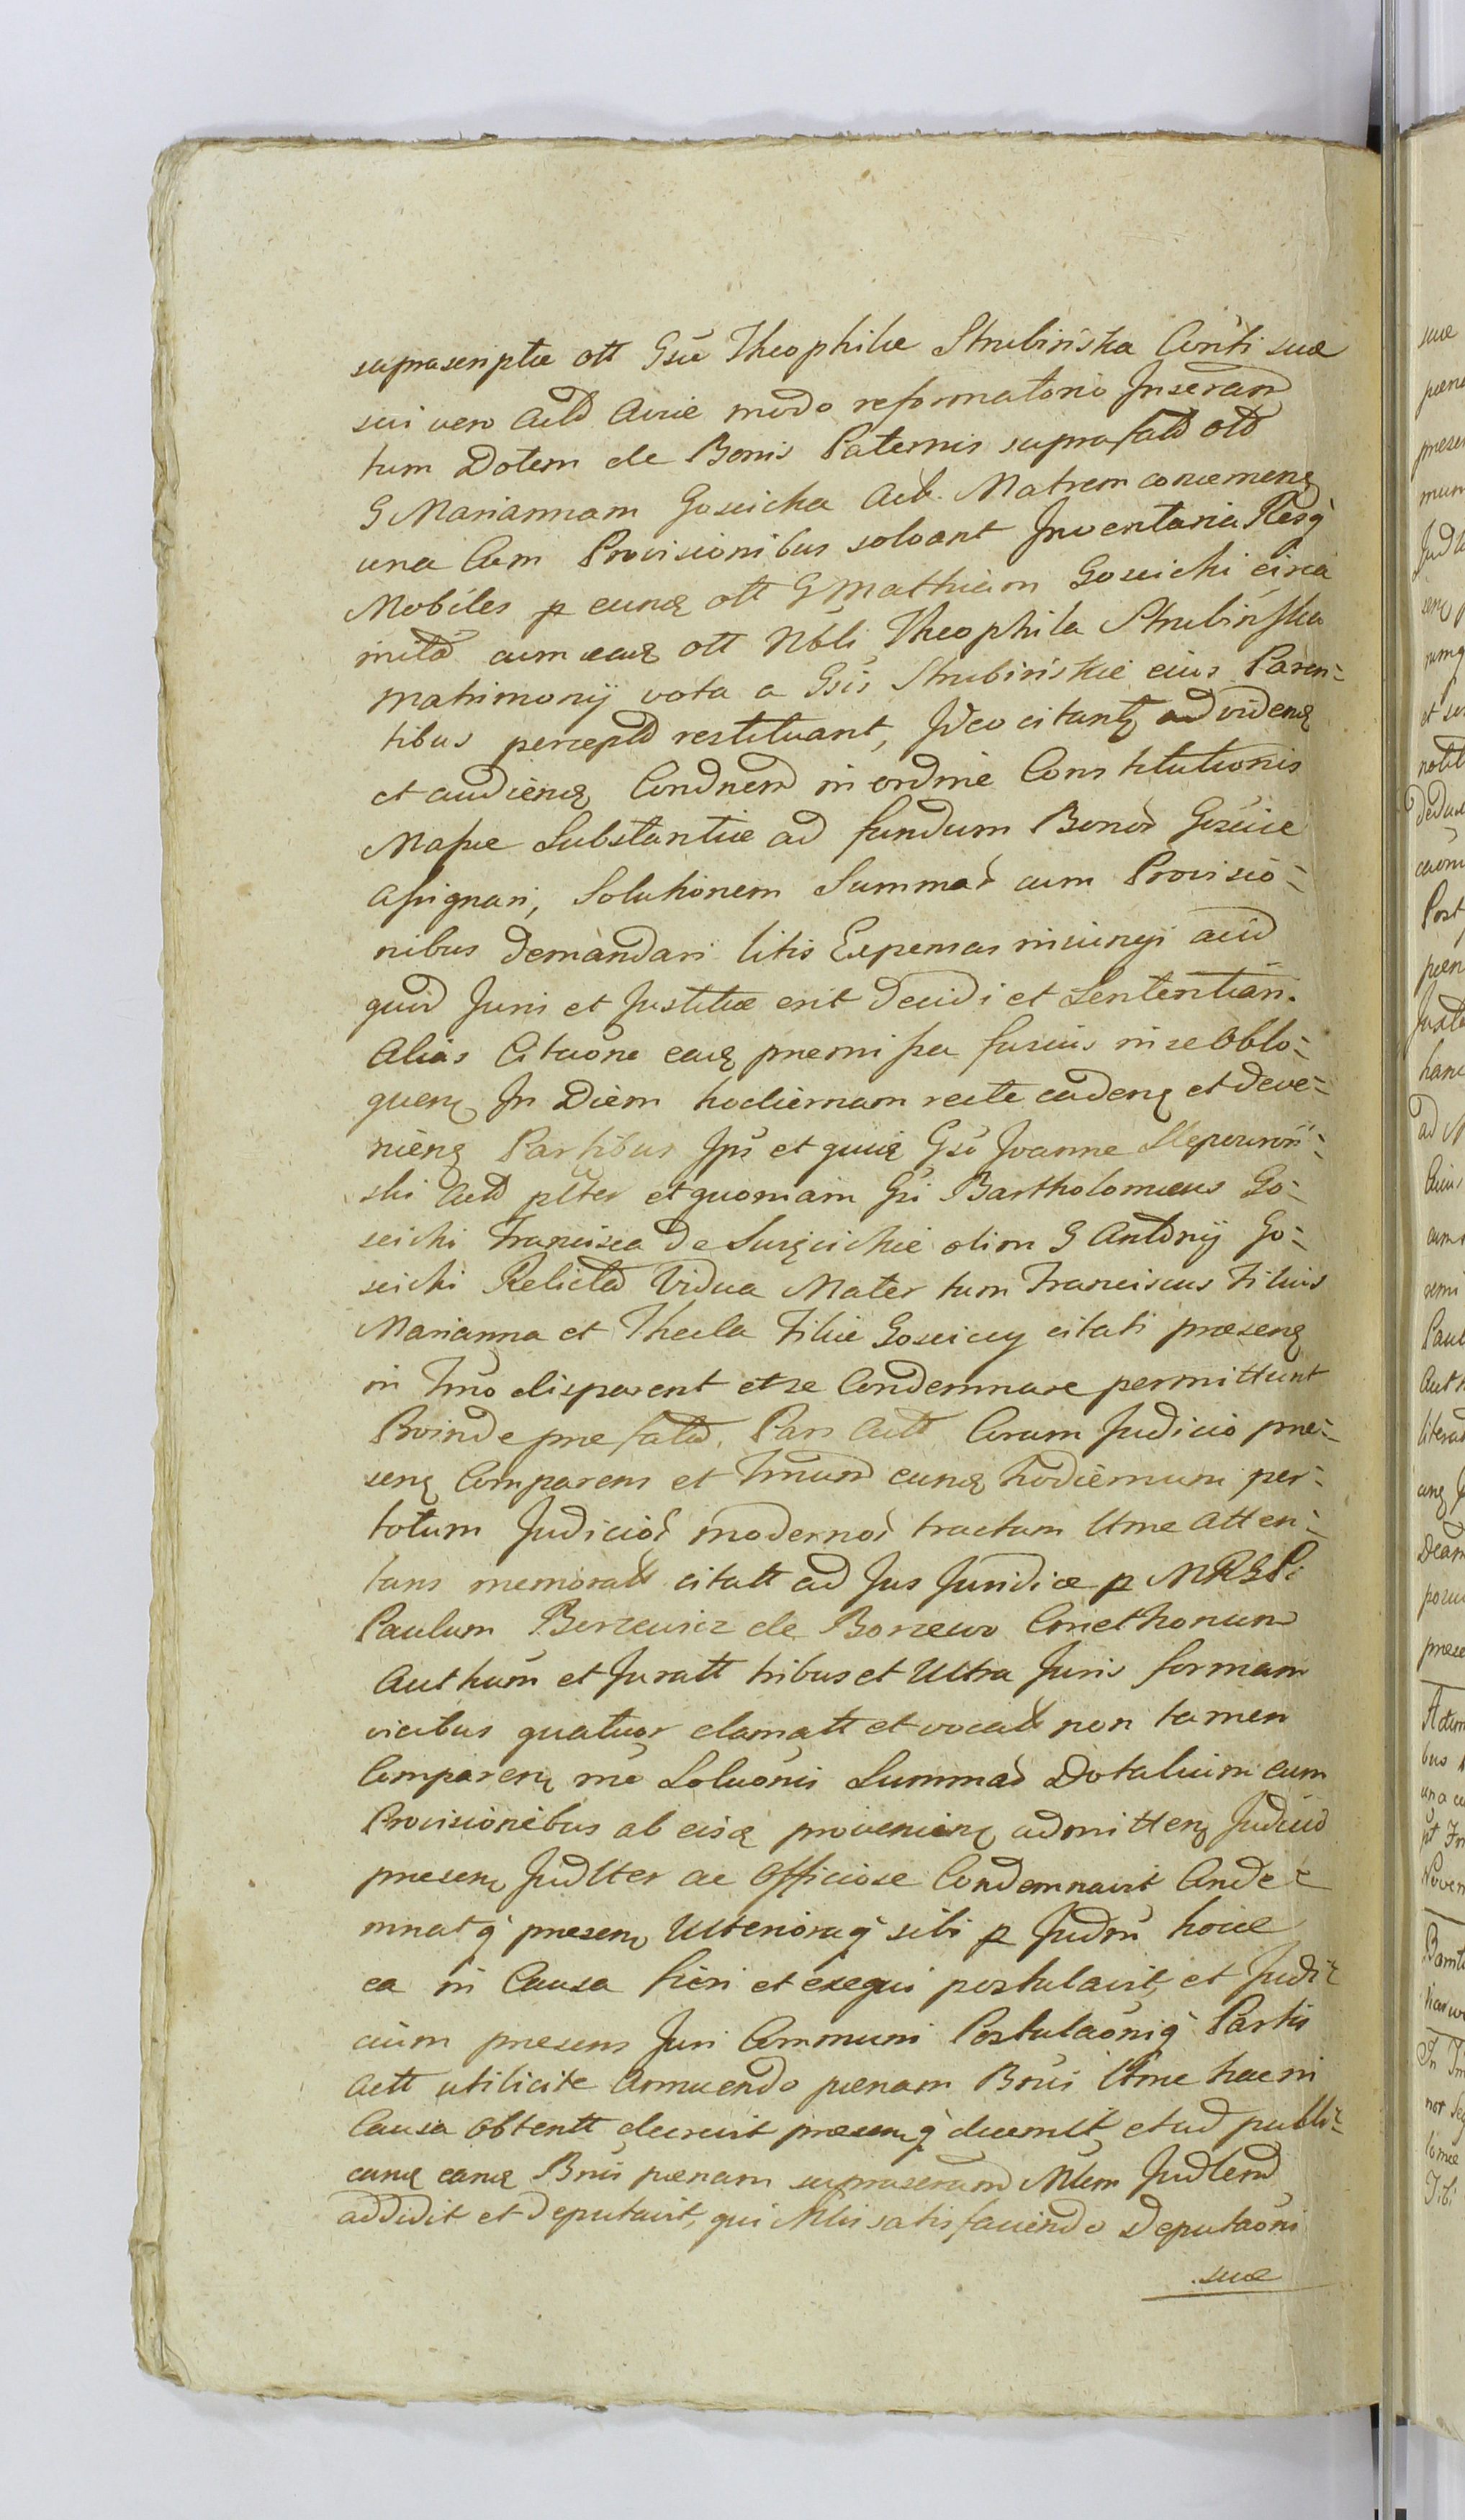 suprascriptæ ott Gsæ Theophilæ Strubińska Conti suæ
sui vero Actd Aviæ modo reformatorio Inserand
tum Dotem de Bonis Paternis suprafatd otd
G Mariannam Goscicka Act. Matrem concernenq
una Cum Provisionibus solvant Inventaria Resq
Mobiles p eunq ott G Mathiam Goscicki circa
inita cum eaq ott Nbli Theophila Strubińska
Matrimonij vota a Gsis Strubińskie eius Paren-
tibus perceptd restituant, Ideo citantq ad videnq
et audienq Condnend in ordine Constitutionis
Massæ Substantiæ ad fundum Bonor Goscice
Assignari, Solutionem Summar cum Provisio-
nibus demandari litis Expensas iniungi acid
quid Juris et Justitiæ erit decidi et Sententiari.
Alias Citaõne eaq premissa fusius in se Oblo-
quenq In Diem hodiernam recte cadenq et deve-
nienq Partibus Ipis et quiq Gso Joanne
ski Actd plter et quoniam Gsi Bartholomæus Go-
scicki Francisca de olim G Antonij Go-
scicki Relicta Vidua Mater tum Franciscus Filius
Marianna et Thecla Filiæ Goscicey citati præsenq
in Tmo disparent et se Condemnare permittunt
Proinde præfatd. Pars Actt Coram Judicio præ-
senq Comparens et Tmum eunq hodiernum per
totum Judicior modernor tractum Utme atten-
tans memoratt citatt ad Jus Juridice p MRGPi
Paulum Berzewicz de Borzewo Cmethonum
Authum et Juratt tribus et Ultra Juris formam
vicibus quatuor clamatt et vocatt non tamen
Comparenq mõ Soluõnis Summar Dotalium cum
Provisionibus ab eisq provenienq admittenq Judicio
presenq Judlter ac Officiose Condemnavit Conde-
mnatq presenq Ulterioraq sibi p Judm hocce
ea in Causa fieri et exequi postulavit, et Judi-
cium presens Juri Communi Postulaõniq Partis
Actt utilicite Annuendo pænam Bnis Utme hac in
Causa Obtentt decrevit presenq decernit et ad publi-
canq eanq Bnis pænam Mlem Judlend
addidit et deputavit, qui Mlis satisfaciendo Deputaõni
suæ